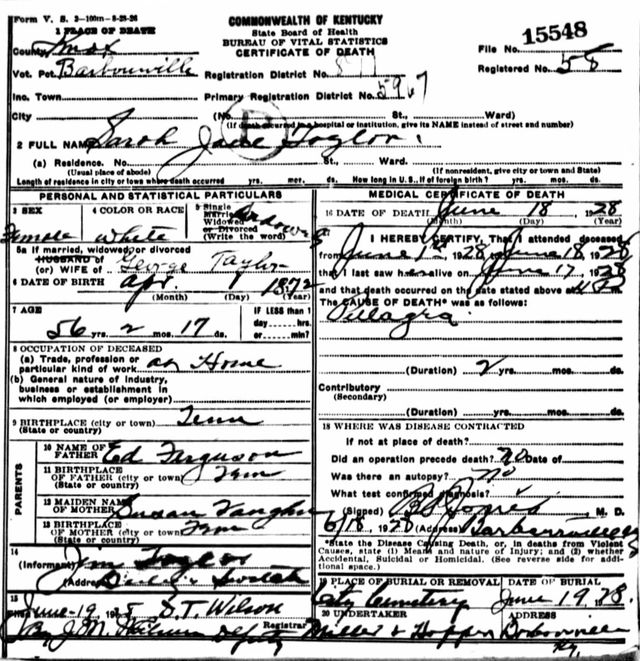 Form V. S. 2-100m-8-25-26
COMMONWEALTH OF KENTUCKY
State Board of Health
BUREAU OF VITAL STATISTICS
CERTIFICATE OF DEATH
1 PLACE OF DEATH
County Knox
File No. 15548
Vot. Pct. Barbourville
Registration District No.
Registered No. 58
Inc. Town
Primary Registration District No. 5967
City (No. St., Ward)
(If death occurred in a hospital or institution, give its NAME instead of street and number)
2 FULL NAME Sarah Jane Taylor
(a) Residence. No. St., Ward.
(Usual place of abode) (If nonresident, give city or town and State)
Length of residence in city or town where death occurred yrs. mos. ds. How long in U. S., if of foreign birth? yrs. mos. ds.
PERSONAL AND STATISTICAL PARTICULARS
3 SEX Female
4 COLOR OR RACE White
5 Single Married Widowed or Divorced (Write the word) Widowed
5a If married, widowed or divorced
HUSBAND of
(or) WIFE of George Taylor
6 DATE OF BIRTH Apr. 1 1872
(Month) (Day) (Year)
7 AGE 56 yrs. 2 mos. 17 ds.
IF LESS than 1 day......hrs. or......min.?
8 OCCUPATION OF DECEASED
(a) Trade, profession or particular kind of work at Home
(b) General nature of industry, business or establishment in which employed (or employer)
9 BIRTHPLACE (city or town) Tenn
(State or country)
PARENTS
10 NAME OF FATHER Ed Ferguson
11 BIRTHPLACE OF FATHER (city or town) Tenn
(State or country)
12 MAIDEN NAME OF MOTHER Susan Vaughn
13 BIRTHPLACE OF MOTHER (city or town) Tenn
(State or country)
14 (Informant) Jim Taylor
(Address)
15 Filed June-19 1928 D.T. Wilson
Registrar
By J.M. Deputy
MEDICAL CERTIFICATE OF DEATH
16 DATE OF DEATH June 18, 1928
(Month) (Day) (Year)
17 I HEREBY CERTIFY, That I attended deceased
from June 1st 1928 to June 18 1928
that I last saw h alive on June 17 1928
and that death occurred on the date stated above at
The CAUSE OF DEATH* was as follows:
Pellagra
(Duration) 2 yrs. mos. ds.
Contributory
(Secondary)
(Duration) yrs. mos. ds.
18 WHERE WAS DISEASE CONTRACTED
If not at place of death?
Did an operation precede death? no Date of
Was there an autopsy? no
What test confirmed diagnosis?
(Signed) B.S. Jones M. D.
6/18, 1928 (Address) Barbourville
*State the Disease Causing Death, or, in deaths from Violent
Causes, state (1) Means and nature of Injury; and (2) whether
Accidental, Suicidal or Homicidal. (See reverse side for additional space.)
19 PLACE OF BURIAL OR REMOVAL City Cemetery
DATE OF BURIAL June 19 1928.
20 UNDERTAKER Miller & Hopper
ADDRESS Barbourville Ky.